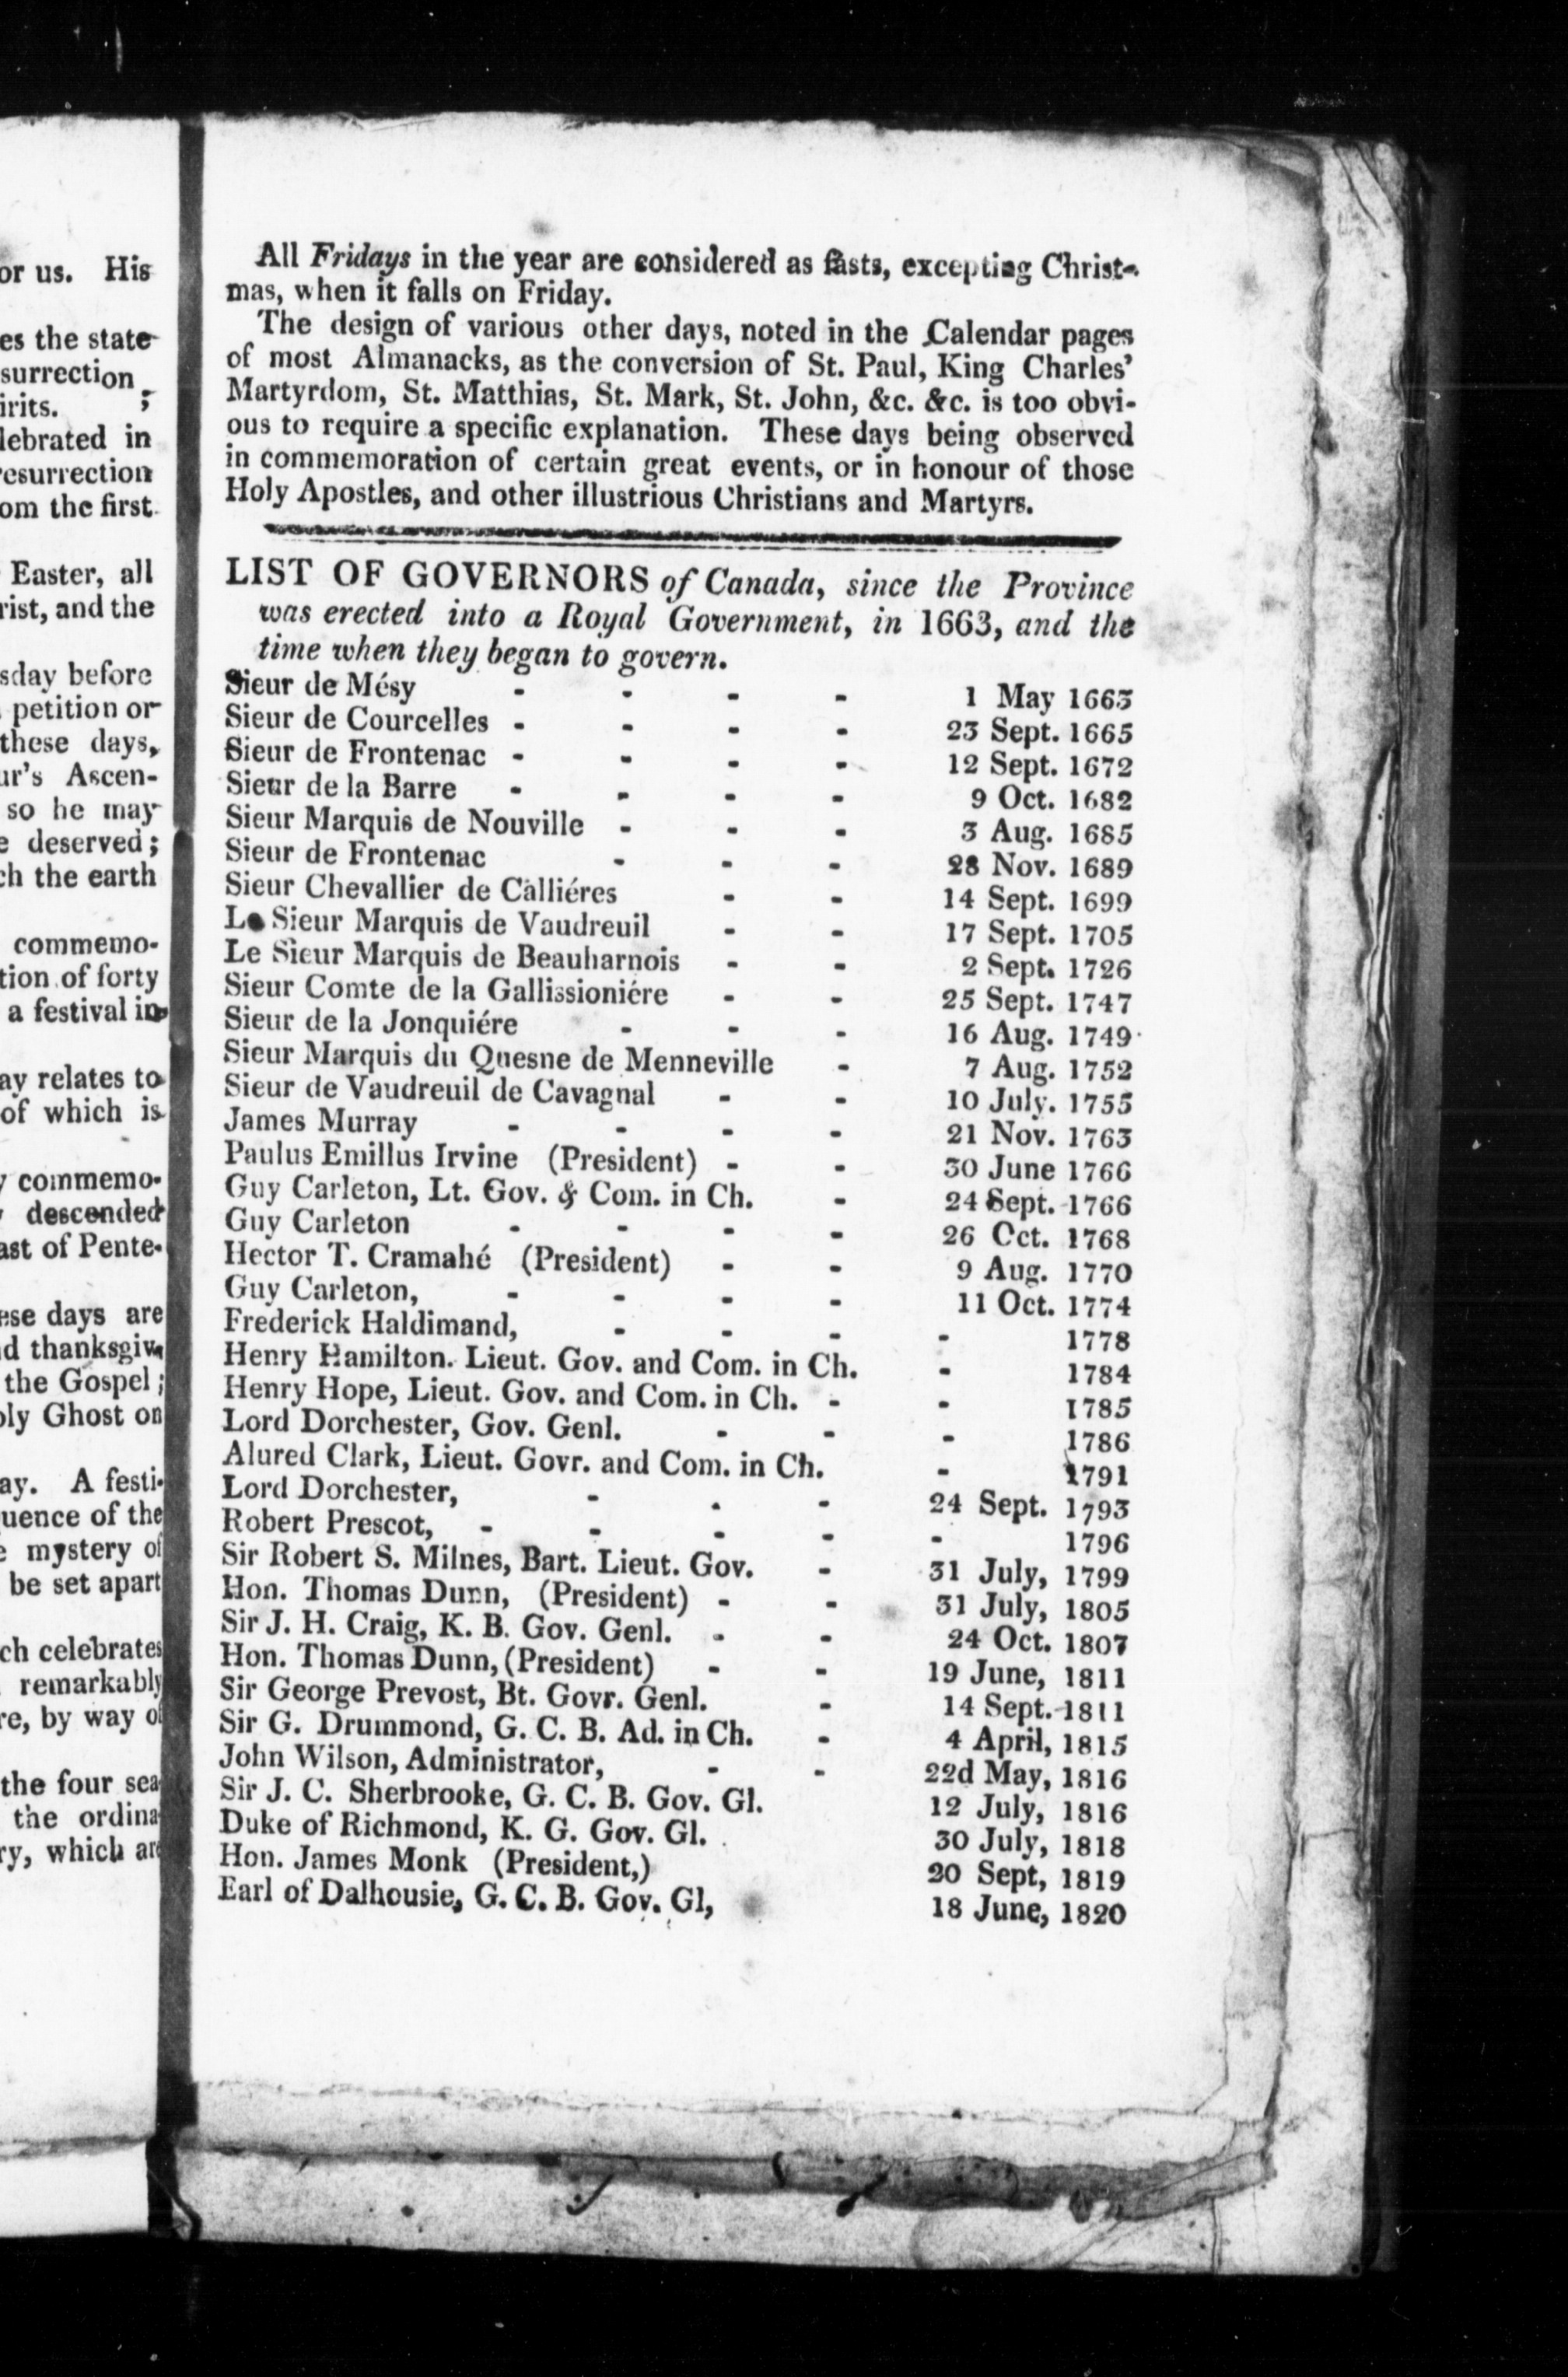 or us. His
es the state
surrection
irits. ;
lebrated in
resurrection
om the first
Easter, all
rist, and the
sday before
petition or
these days,
ur's Ascen-
so he may
e deserved;
ch the earth
commemo-
tion of forty
a festival in
ay relates to
of which is
y commemo-
descended
ast of Pente-
ese days are
d thanksgiv
the Gospel;
oly Ghost on
ay. A festi-
uence of the
e mystery of
be set apart
ch celebrates
remarkably
re, by way of
the four sea
the ordina
ry, which are
All Fridays in the year are considered as fasts, excepting Christ-
mas, when it falls on Friday.
The design of various other days, noted in the Calendar pages
of most Almanacks, as the conversion of St. Paul, King Charles'
Martyrdom, St. Matthias, St. Mark, St. John, &c. &c. is too obvi-
ous to require a specific explanation. These days being observed
in commemoration of certain great events, or in honour of those
Holy Apostles, and other illustrious Christians and Martyrs.
LIST OF GOVERNORS of Canada, since the Province
was erected into a Royal Government, in 1663, and the
time when they began to govern.
Sieur de Mésy - - - - 1 May 1663
Sieur de Courcelles - - - - 23 Sept. 1665
Sieur de Frontenac - - - - 12 Sept. 1672
Sieur de la Barre - - - - 9 Oct. 1682
Sieur Marquis de Nouville - - - 3 Aug. 1685
Sieur de Frontenac - - - 28 Nov. 1689
Sieur Chevallier de Càlliéres - - 14 Sept. 1699
Le Sieur Marquis de Vaudreuil - - 17 Sept. 1705
Le Sieur Marquis de Beauharnois - - 2 Sept. 1726
Sieur Comte de la Gallissioniére - - 25 Sept. 1747
Sieur de la Jonquiére - - - 16 Aug. 1749
Sieur Marquis du Quesne de Menneville - 7 Aug. 1752
Sieur de Vaudreuil de Cavagnal - - 10 July. 1755
James Murray - - - - 21 Nov. 1763
Paulus Emillus Irvine (President) - - 30 June 1766
Guy Carleton, Lt. Gov. & Com. in Ch. - 24 Sept. 1766
Guy Carleton - - - - 26 Oct. 1768
Hector T. Cramahé (President) - - 9 Aug. 1770
Guy Carleton, - - - - 11 Oct. 1774
Frederick Haldimand, - - - - 1778
Henry Hamilton. Lieut. Gov. and Com. in Ch. - 1784
Henry Hope, Lieut. Gov. and Com. in Ch. - - 1785
Lord Dorchester, Gov. Genl. - - - 1786
Alured Clark, Lieut. Govr. and Com. in Ch. - 1791
Lord Dorchester, - - - 24 Sept. 1793
Robert Prescot, - - - - - 1796
Sir Robert S. Milnes, Bart. Lieut. Gov. - 31 July, 1799
Hon. Thomas Dunn, (President) - - 31 July, 1805
Sir J. H. Craig, K. B. Gov. Genl. - - 24 Oct. 1807
Hon. Thomas Dunn, (President) - - 19 June, 1811
Sir George Prevost, Bt. Govr. Genl. - 14 Sept. 1811
Sir G. Drummond, G. C. B. Ad. in Ch. - 4 April, 1815
John Wilson, Administrator, - - 22d May, 1816
Sir J. C. Sherbrooke, G. C. B. Gov. Gl. 12 July, 1816
Duke of Richmond, K. G. Gov. Gl. 30 July, 1818
Hon. James Monk (President,) 20 Sept, 1819
Earl of Dalhousie, G. C. B. Gov. Gl, 18 June, 1820